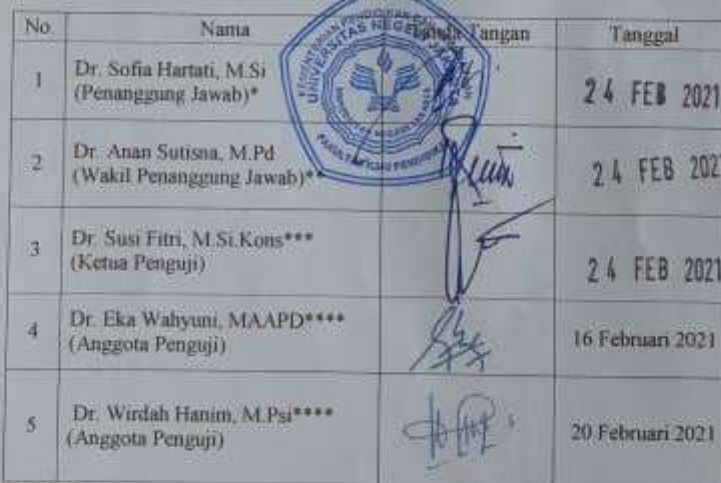 No Nama Tanda Tangan Tanggal
1 Dr. Sofia Hartati, M.Si
(Penanggung Jawab)*
24 FEB 2021
2 Dr. Anan Sutisna, M.Pd
(Wakil Penanggung Jawab)**
24 FEB 202
3 Dr. Susi Fitri, M.Si.Kons***
(Ketua Penguji)
24 FEB 2021
4 Dr. Eka Wahyuni, MAAPD****
(Anggota Penguji)
16 Februari 2021
5 Dr. Wirdah Hanim, M.Psi****
(Anggota Penguji)
20 Februari 2021
UNIVERSITAS NEGERI JAKARTA
FAKULTAS ILMU PENDIDIKAN